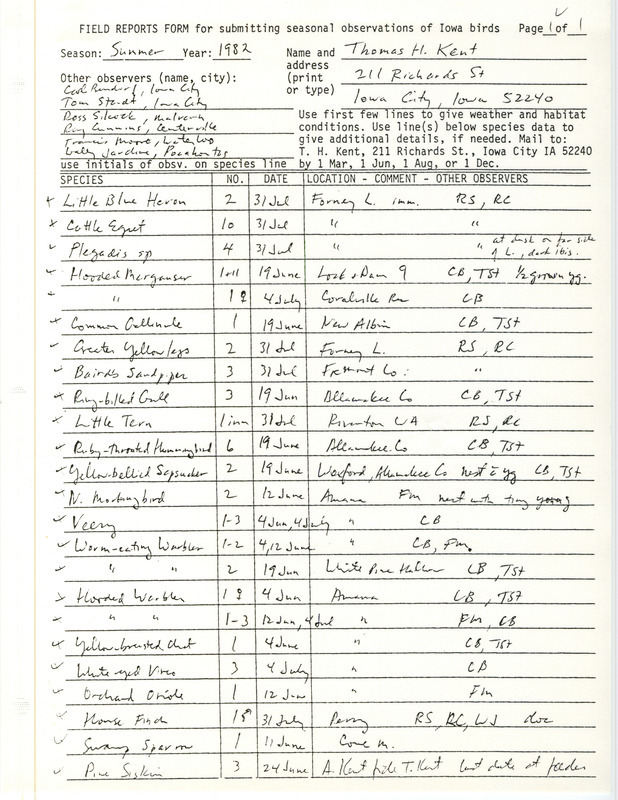 FIELD REPORTS FORM for submitting seasonal observations of Iowa birds Page 1 of 1
Season: Summer Year: 1982
Name and address (print or type)
Thomas H. Kent
211 Richards St
Iowa City, Iowa 52240
Other observers (name, city):
Carl Bendorf, Iowa City
Tom Staudt, Iowa City
Ross Silcock, Malvern
Ray Cummins, Centerville
Francis Moore, Waterloo
Willy Jardine, Pocahontas
use initials of obsv. on species line
Use first few lines to give weather and habitat
conditions. Use line(s) below species data to
give additional details, if needed. Mail to:
T. H. Kent, 211 Richards St., Iowa City IA 52240
by 1 Mar, 1 Jun, 1 Aug, or 1 Dec.
SPECIES NO. DATE LOCATION - COMMENT - OTHER OBSERVERS
Little Blue Heron 2 31 Jul Forney L. imm. RS, RC
Cattle Egret 10 31 Jul " "
Plegadis sp 4 31 Jul " " at dusk on far side of L., dark ibis.
Hooded Merganser 1+11 19 June Lock & Dam 9 CB, TSt 1/2 grown yg.
" 1♀ 4 July Coralville Res CB
Common Gallinule 1 19 June New Albin CB, TSt
Greater Yellowlegs 2 31 Jul Forney L. RS, RC
Bairds Sandpiper 3 31 Jul Fremont Co. "
Ring-billed Gull 3 19 Jun Allamakee Co CB, TSt
Little Tern 1 imm 31 Jul Riverton WA RS, RC
Ruby-Throated Hummingbird 6 19 June Allamakee Co CB, TSt
Yellow-bellied Sapsucker 2 19 June Waxford, Allamakee Co nest c̄ yg CB, TSt
N. Mockingbird 2 12 June Amana FM nest with tiny young
Veery 1-3 4 Jun, 4 July " CB
Worm-eating Warbler 1-2 4, 12 June " CB, FM
" " 2 19 Jun White Pine Hollow CB, TSt
Hooded Warbler 1♀ 4 Jun Amana CB, TSt
" " 1-3 12 Jun, 4 Jul " FM, CB
Yellow-breasted Chat 1 4 June " CB, TSt
White-eyed Vireo 3 4 July " CB
Orchard Oriole 1 12 Jun " FM
House Finch 1♂ 31 July Perry RS, RC, WJ doc
Swamp Sparrow 1 11 June Cone M.
Pine Siskin 3 24 June A. Kent fide T. Kent last date at feeder